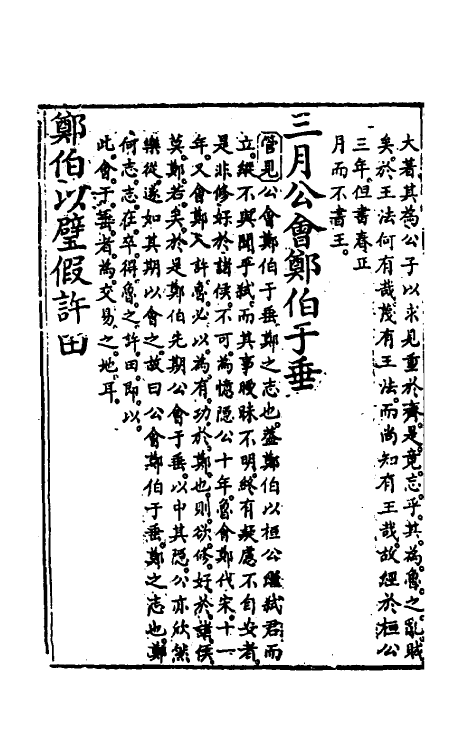 大著其為公子以求見重於齊是竟忘乎其為魯之亂賊
矣於王法何有哉茂有王法而尚知有王哉故經於桓公
三年但書春正
月而不書王
三月公會鄭伯于垂
管見公會鄭伯于垂鄭之志也蓋鄭伯以桓公繼弑君而
立縱不與聞乎弑而其事曖昧不明終有疑慮不自安者
是非修好於諸侯不可為憶隱公十年魯會鄭伐宋十一
年又會鄭入許魯必以為有功於鄭也則欲修好於諸侯
莫鄭若矣於是鄭伯先期公會于垂以中其隱公亦欣然
樂從遂如其期以會之故曰公會鄭伯于垂鄭之志也鄭
何志志在卒得魯之許田即以
此會于垂者為交易之地耳
鄭伯以璧假許田